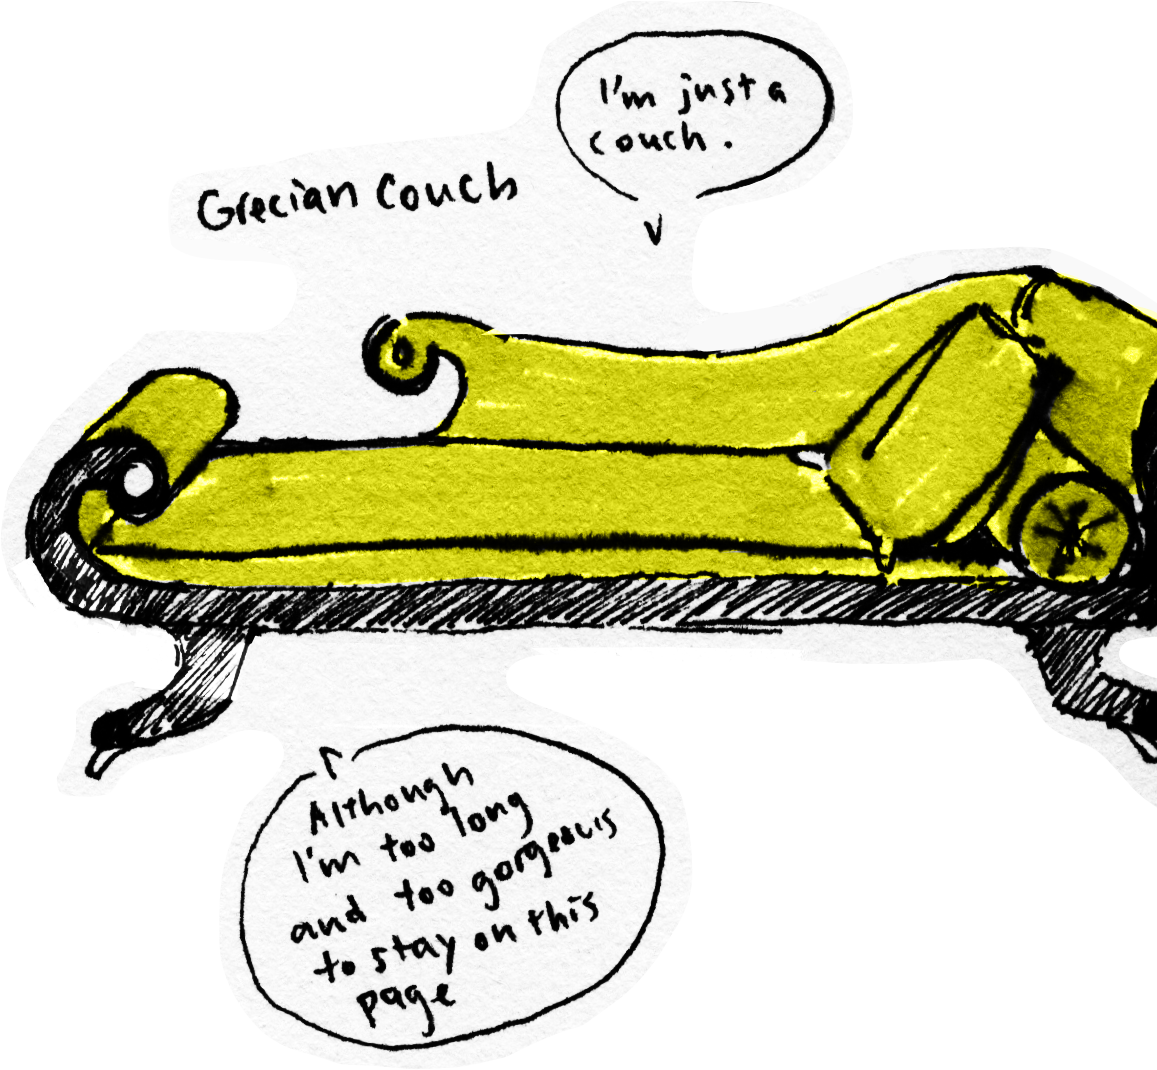 I'm just a
couch.
Grecian Couch
Although
I'm too long
and too gorgeous
to stay on this
page